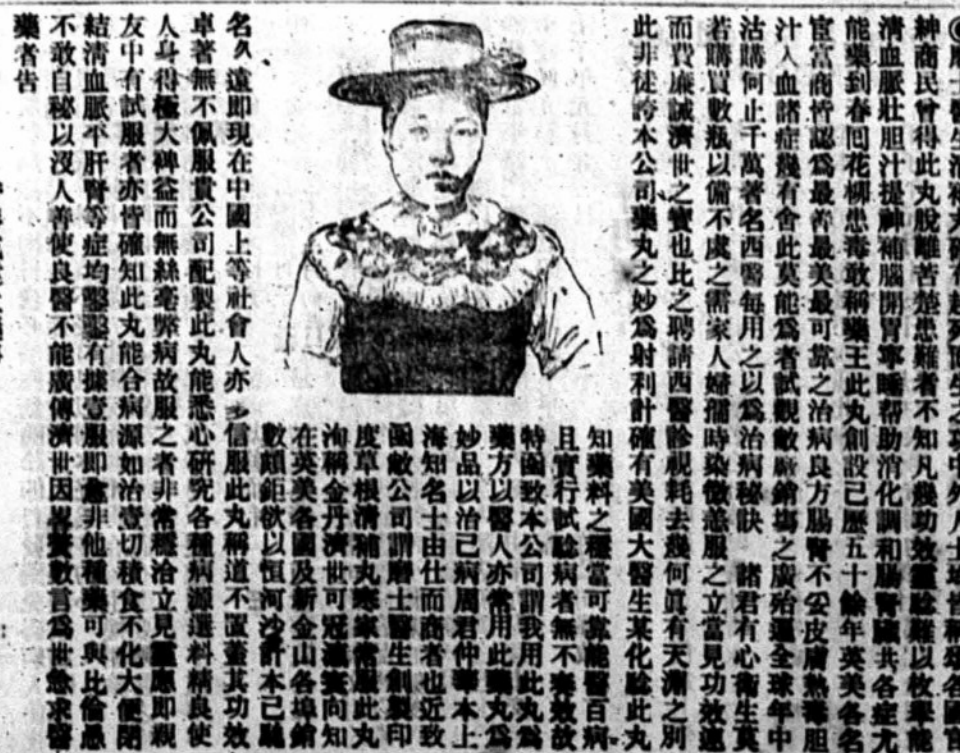 紳商民曾得此丸脫離苦楚患難者不知凡幾功效靈騐難以枚舉能
清血脈壯胆汁提神補腦開胃寧睡帮助消化調和腸腎臟共各症尤
能藥到春囘花柳患毒敢稱藥王此丸創設已歷五十餘年英美各名
宦富商皆認爲最善最美最可靠之治病良方腸腎不公皮膚熱毒胆
汁入血諸症幾有舍此莫能爲者試觀敝廠銷塲之廣殆遍全球年中
沽購何止千萬著名西醫每用之以爲治病秘訣　諸君有心衛生莫
若購買數瓶以備不虞之需家人婦孺時染微恙服之立當見功效速
而費廉誠濟世之寶也比之聘請西醫診視耗去幾何眞有天淵之別
此非徒誇本公司藥丸之妙爲射利計確有美國大醫生某化騐此丸
知藥料之穩當可靠能醫百病
且實行試騐病者無不奏效故
特圅致本公司謂我用此丸爲
藥方以醫人亦常用此丸爲
妙品以治己病周君仲華本上
海知名士由仕而商者也近致
圅敝公司謂磨士醫生創製印
度草根清補丸寒家常服此丸
洵稱金丹濟世可冠瀛寰向知
在英美各國及新金山各埠銷
數頗鉅欲以恒河沙計本已馳
名久遠即現在中國上等社會人亦多信服此丸稱道不置蓋其功效
卓著無不佩服貴公司配製此丸能悉心研究各種病源選料精良使
人身得極大碑益而無絲毫弊病故服之者非常穩洽立見靈應即親
友中有試服者亦皆確知此丸能合病源如治壹切積食不化大便閉
結清血脈平肝腎等症均鑿鑿有據壹服即愈非他種藥可與比倫愚
不敢自秘以沒人善使良醫不能廣傳濟世因畧贅數言爲世之求醫
藥者告